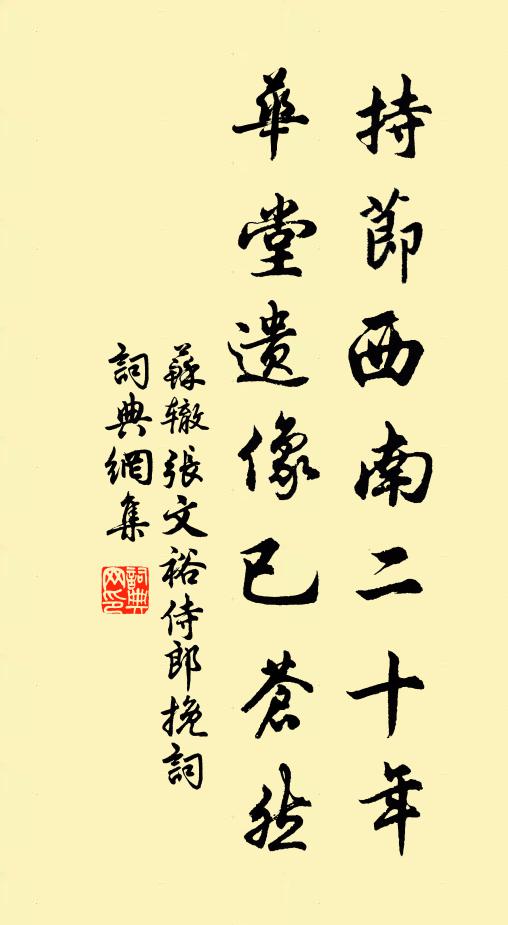 持節西南二十年
華堂遺像已蒼然
蘇轍張文裕侍郎挽詞
詞典網集
詞典網印